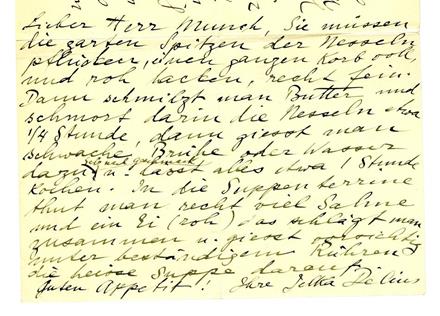 Lieber Herr Munch, Sie müssen
die zarten Spitzen der Nesseln
pflücken, einen ganzen Korb voll,
und roh hacken, recht fein.
Dann schmilzt man Butter und
schmort darin die Nesseln etwa
1/4 Stunde, dann giesst man
schwache Brühe oder Wasser
dazu u. lässt alles etwa 1 Stunde
kochen. In die Suppenterrine
thut man recht viel Sahne
und ein Ei (roh) das schlägt man
zusammen u. giesst vorsichtig
unter beständigem Rühren
die heisse Suppe darauf.
Guten Appetit! Ihre Jelka Delius